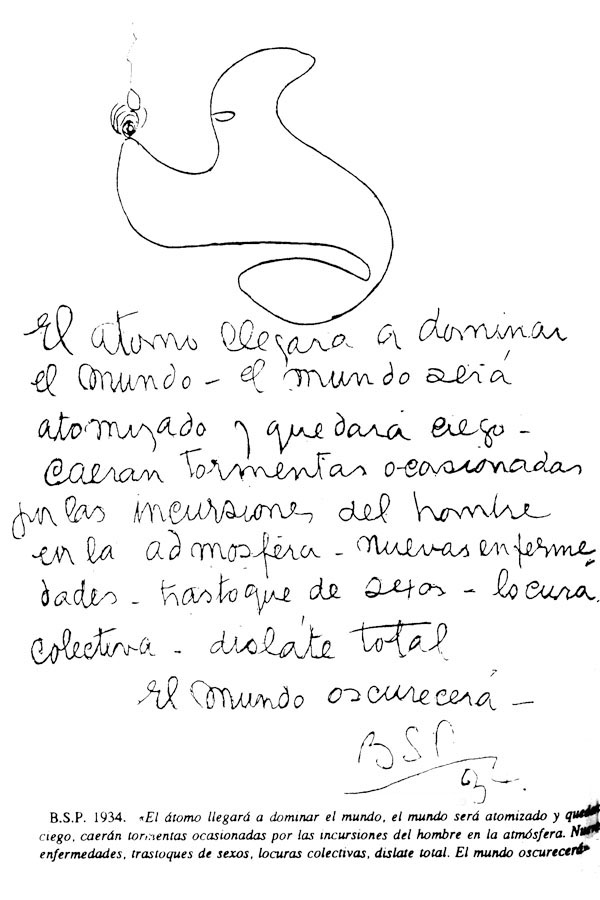 El atomo llegara a dominar
el mundo - el mundo será
atomizado y quedará ciego -
caeran tormentas ocasionadas
por las incursiones del hombre
en la admosféra - nuevas enferme
dades - trastoque de sexos - locura
colectiva - disláte total
El mundo oscurecerá -
BSP
B.S.P. 1934. «El átomo llegará a dominar el mundo, el mundo será atomizado y
ciego, caerán tormentas ocasionadas por las incursiones del hombre en la atmósfera.
enfermedades, trastoques de sexos, locuras colectivas, dislate total. El mundo oscurecerá»